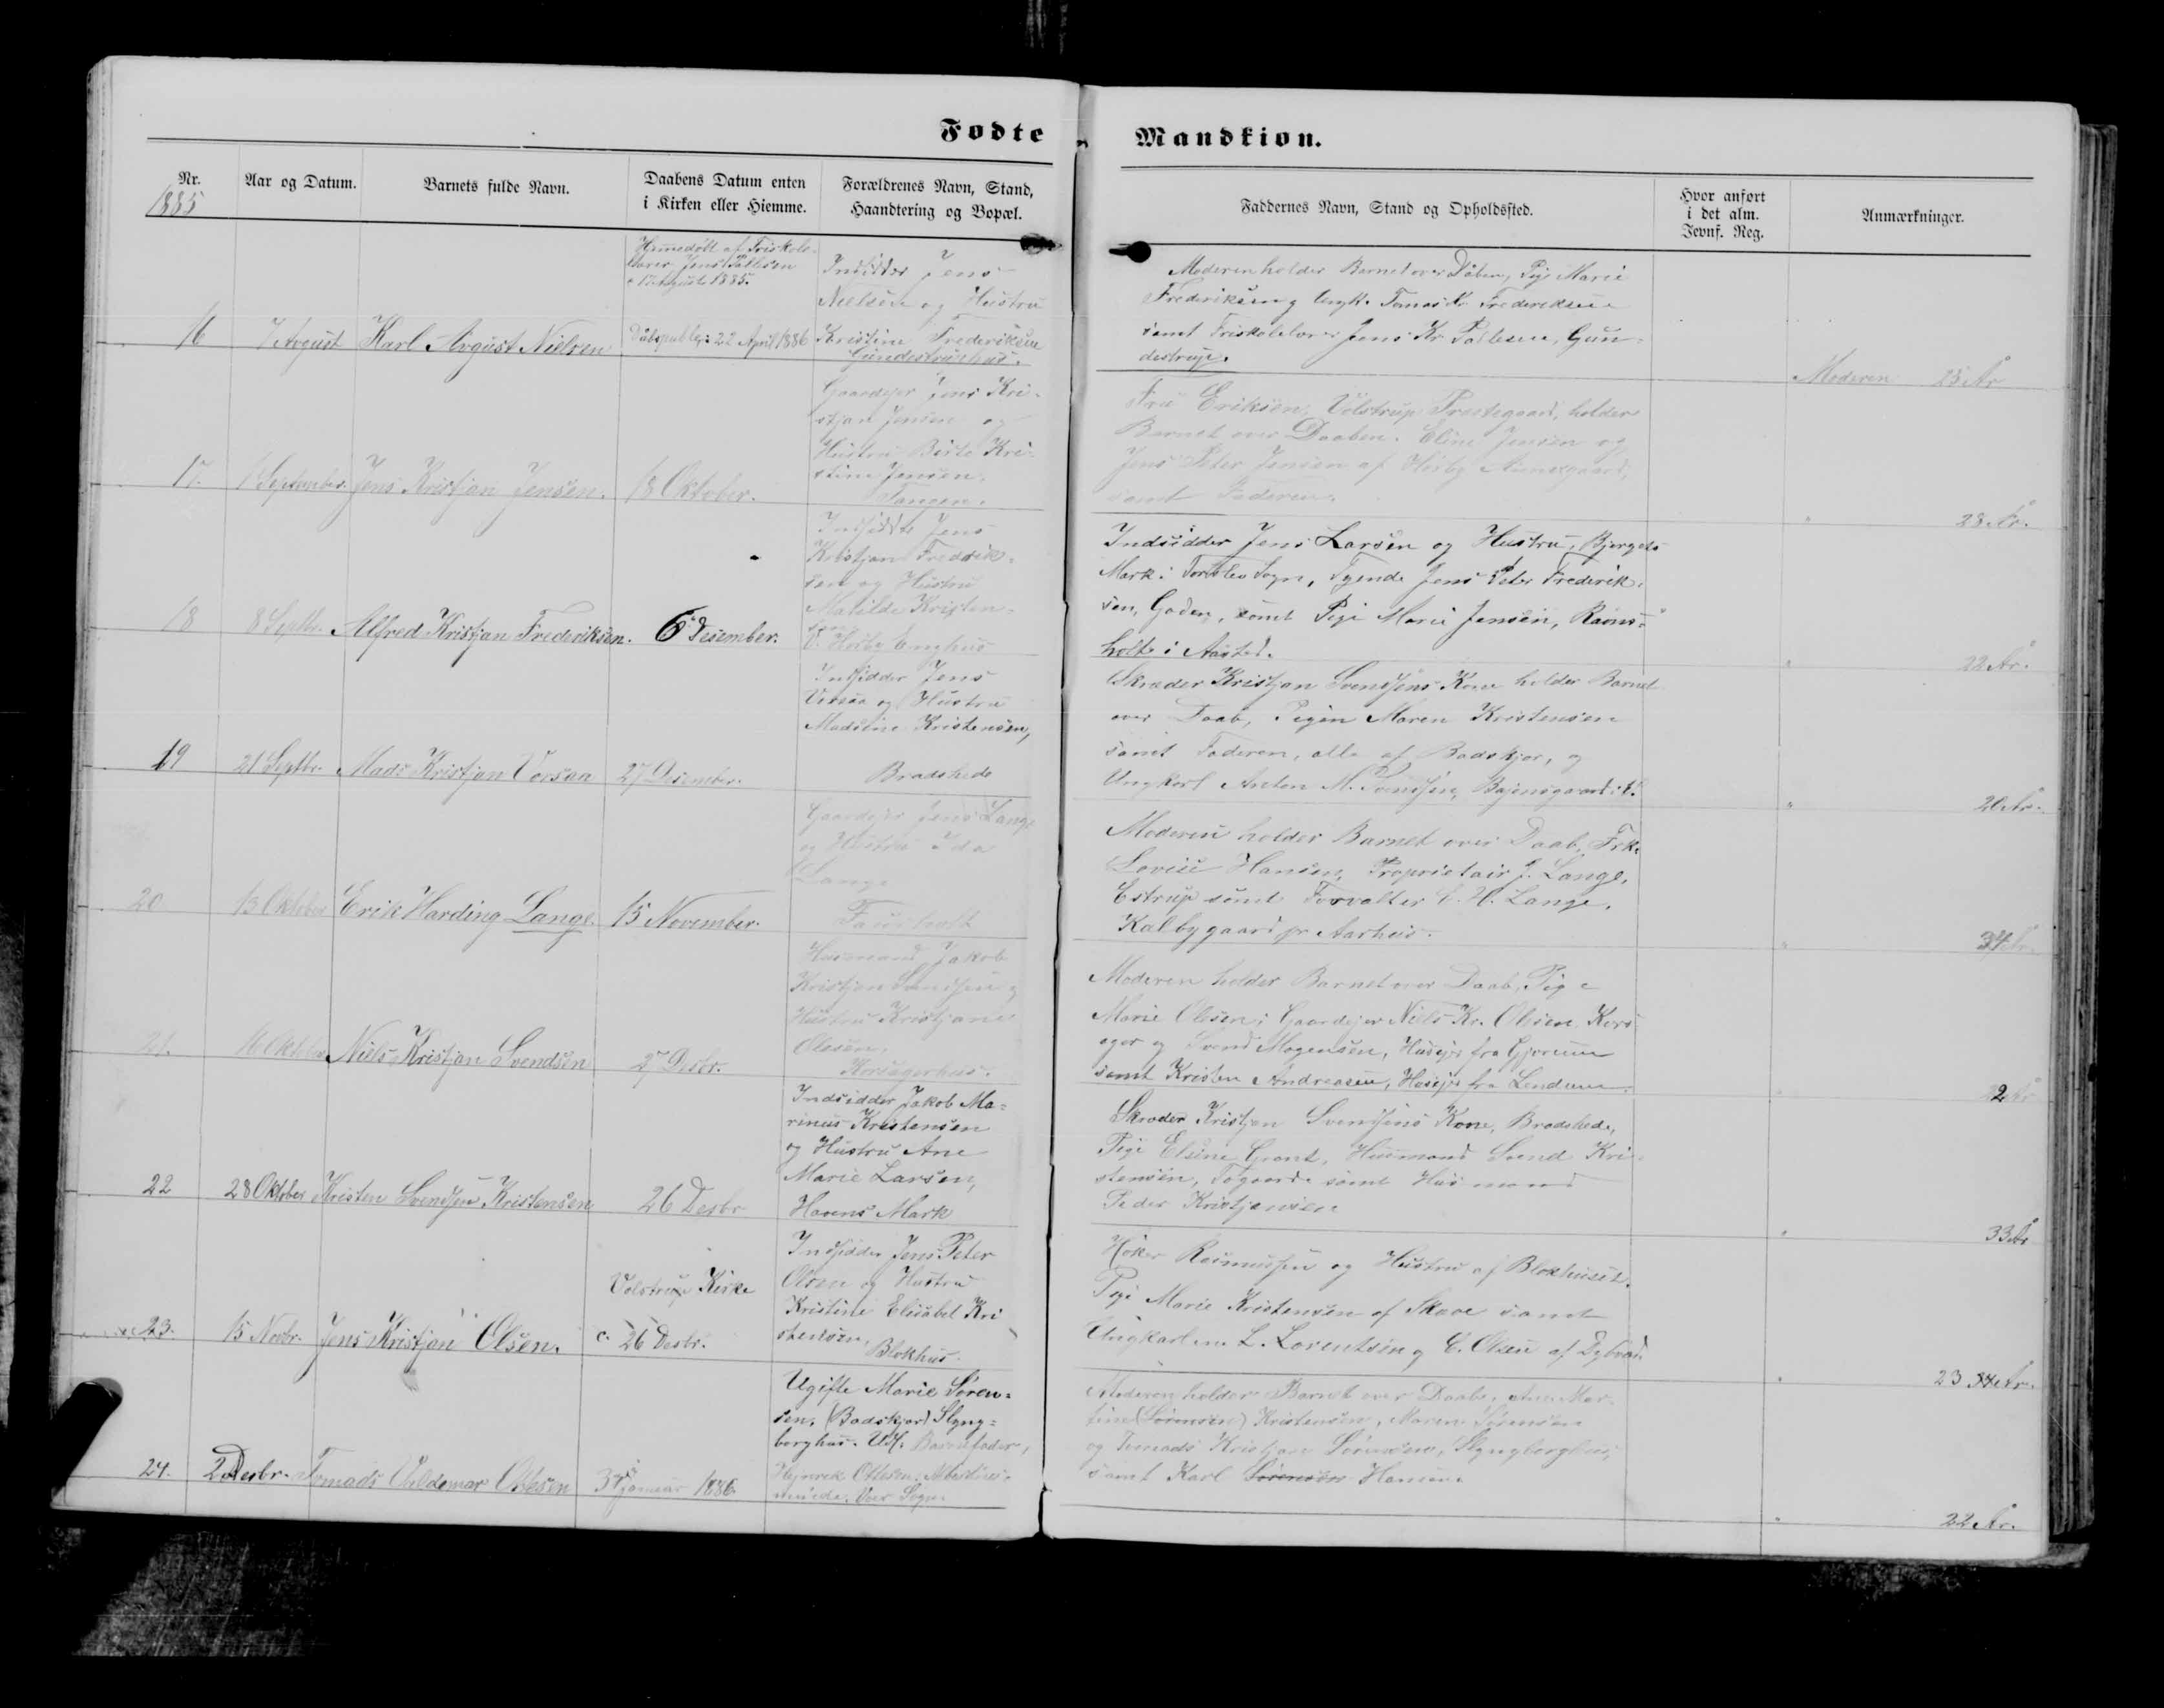 Fødte
Mandkiøn.
Nr.
1885
Aar og Datum.
Barnets fulde Navn.
Daabens Datum enten
i Kirken eller Hiemme.
Forældrenes Navn, Stand,
Haandtering og Bopæl.
Faddernes Navn, Stand og Opholdssted.
Hvor anført
i det alm.
Jevnf. Reg.
Anmærkninger.
16
7 August
Karl Avgust Nielsen
Hjemedøbt af Friskole-
lærer Jens Pallesen
17 August 1885.
Dåbspubler: 22 April 1886
Indsidder Jens
Nielsen og Hustru
Kristine Frederiksen
Gundestruphus.
Moderen holder Barnet over Dåben, Pige Marie
Frederiksen og Ungk. Tomas Kr. Frederiksen
samt Friskolelærer Jens Kr. Pallesen, Gun-
destrup.
Moderen 25 År
17.
September
Jens Kristjan Jensen.
18 Oktober.
Gaardejer Jens Kri-
stjan Jensen og
Hustru Birte Kri-
stine Jensen,
Fru Eriksen, Volstrup Præstegaard, holder
Barnet over Daaben. Eline Jensen og
Jens Peter Jensen af Annexgaard,
samt Faderen.
" 28 År.
18
8 Septbr.
Alfred Kristjan Frederiksen.
6 Desember.
Indsidder Jens
Kristjan Fredrik-
sen og Hustru
Matilde Kristen-
sen
Enghus
Indsidder Jens Larsen og Hustru, Bjergets
Mark i Torslev Sogn, Tyende Jens Peter Frederik-
sen, Gaden, samt Pige Marie Jensen, Ravns-
holt i Aasted.
" 22 År.
19
21 Septbr.
Mads Kristjan Vorsaa
27 Desember.
Indsidder Jens
Vorsaa og Hustru
Madsine Kristensen,
Bradshede
Skræder Kristjan Svendsens Kone holder Barnet
over Daab, Pigen Maren Kristensen
samt Faderen, alle af Badskjær, og
Ungkarl Anton M. Svendsen,
" 20 År.
20
13 Oktober
Erik Harding Lange.
15 November.
Gaardejer Jens Lange
og Hustru Ida
Lange
Faurholt
Moderen holder Barnet over Daab, Frk.
Lovise Hansen, Proprietair J. Lange,
Estrup samt Forvalter C. H. Lange,
Kalbygaard pr Aarhus.
" 34 År.
21.
16 Oktober
Niels Kristjan Svendsen
27 Desbr.
Husmand Jakob
Kristjan Svendsen og
Hustru Kristjane
Olesen,
Korsagerhus.
Moderen holder Barnet over Daab, Pige
Marie Olesen, Gaardejer Niels Kr. Olesen Kors-
ager og Svend Mogensen, Husejer fra Gjærum
samt Kristen Andreasen, Husejer fra Lendum.
22
28 Oktober
Kristen Svendsen Kristensen
26 Desbr
Indsidder Jakob Ma-
rinus Kristensen
og Hustru Ane
Marie Larsen,
Havens Mark
Skræder Kristjan Svendsens Kone, Bradshede,
Pige Elsine Grønt, Husmand Svend Kri-
stensen, Togaard samt Husmand
Peder Kristjansen
" 33 År
23.
15 Novbr.
Jens Kristjan Olsen.
Volstrup Kirke
c. 26 Desbr.
Indsidder Jens Peter
Olsen og Hustru
Kristine Elisabet Kri-
stensen,
Blokhus.
Høker Rasmussen og Hustru af Blokhuset,
Pige Marie Kristensen af Skæve samt
Ungkarlene L. Lorentsen og C. Olsen af Dybvad.
" 23 År.
24.
2 Desbr.
Tomads Valdemar Ottesen
3 Januar 1886
Ugifte Marie Søren-
sen, (Badskjær) Slyng-
borghus. Udl. Barnefader,
Henrik Ottesen,
Voer Sogn.
Moderen holder Barnet over Daab, Ane Mar-
tine (Sørensen) Kristensen, Maren Sørensen
og Tomads Kristjan Sørensen, Slyngborghus,
samt Karl Sørensen Hansen.
" 22 År.